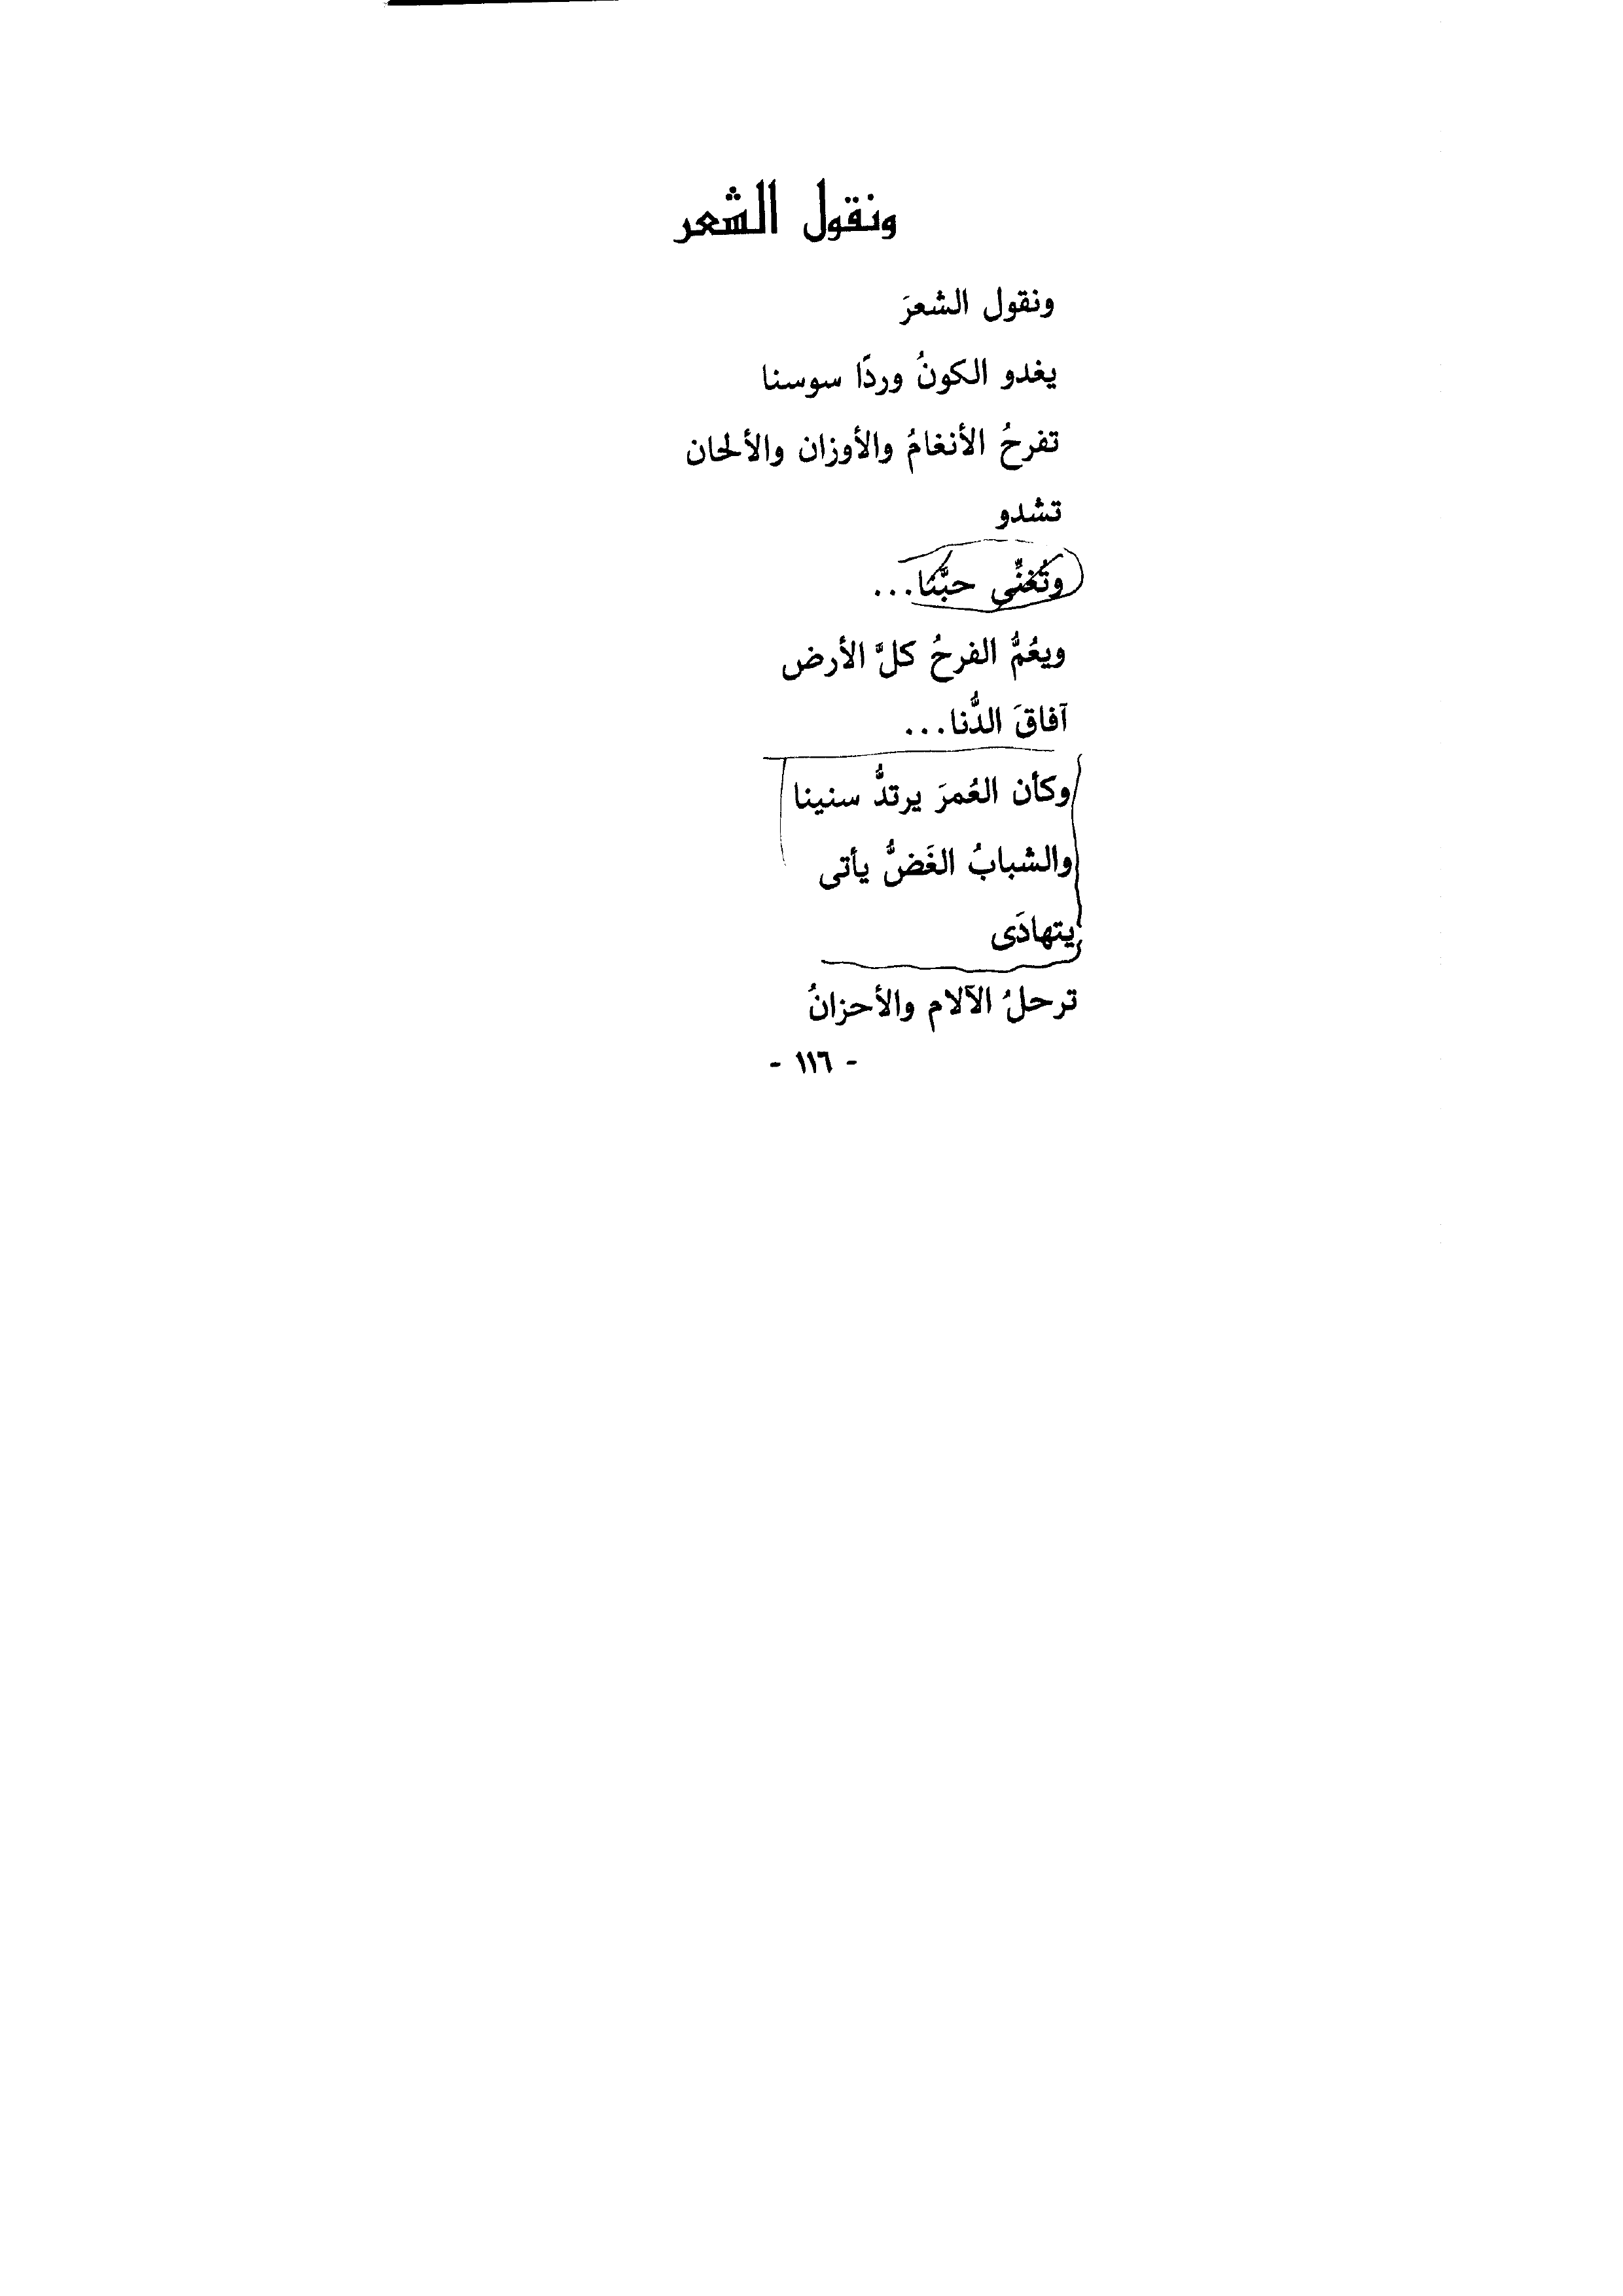 ونقول الشعر
ونقول الشعرَ
يغدو الكونُ وردًا سوسنا
تفرحُ الأنغامُ والأوزان والألحان
تشدو
وتُغنِّى حبَّنا...
ويعُمُّ الفرحُ كلَّ الأرض
آفاقَ الدُّنا...
وكأن العُمرَ يرتدُّ سنينا
والشبابُ الغَضُّ يأتى
يتهادَى
ترحلُ الآلام والأحزانُ
- ١١٦ -